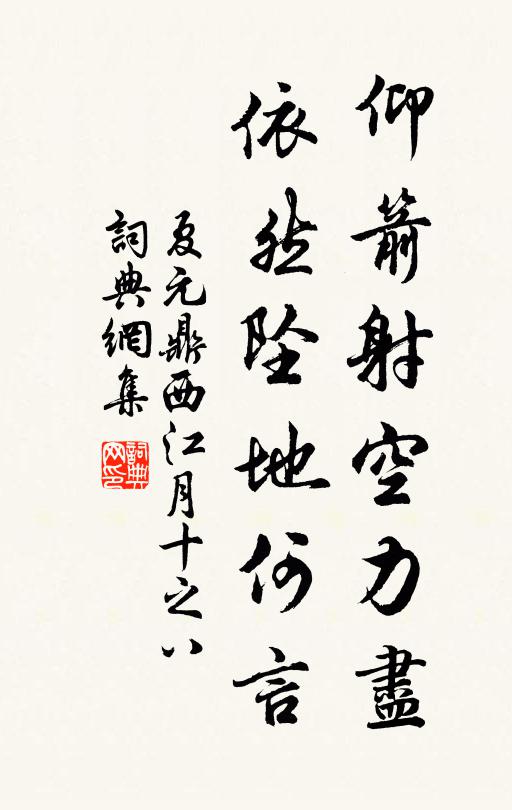 仰箭射空力盡
依然墜地何言
夏元鼎西江月十之八
詞典網集
詞典網印